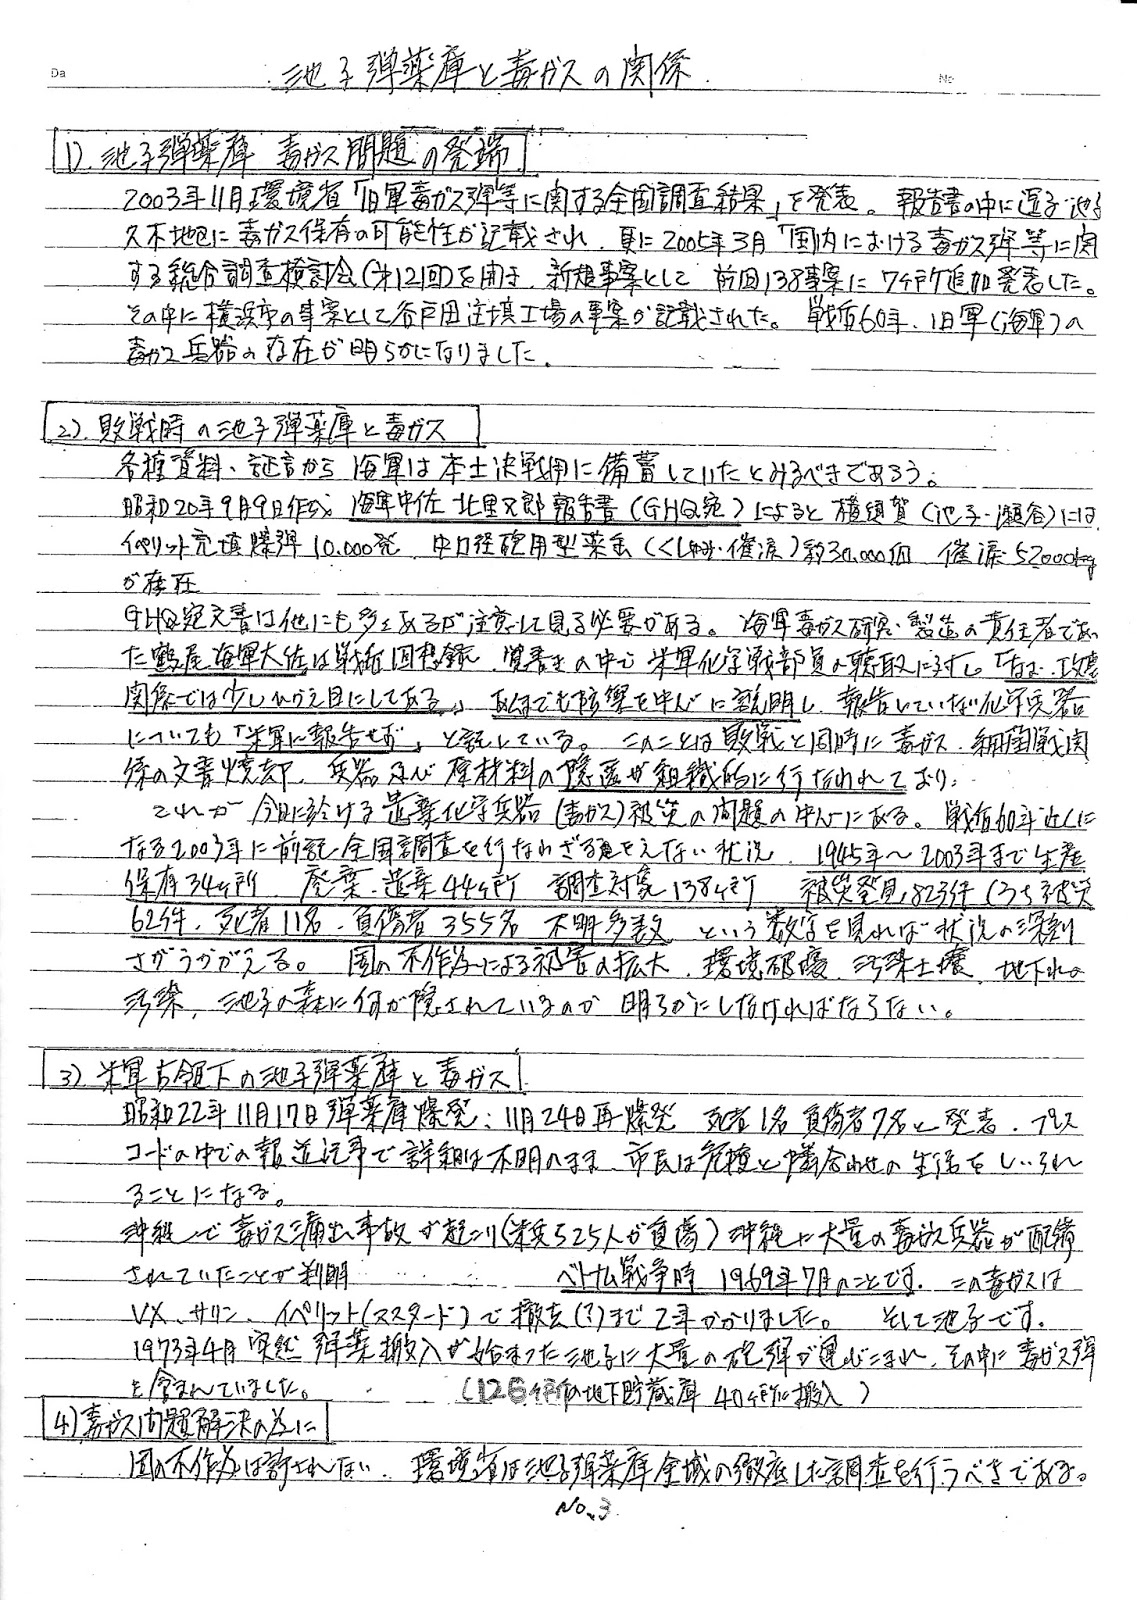 Da
No
池子弾薬庫と毒ガスの関係
1). 池子弾薬庫 毒ガス問題の発端
2003年11月環境省「旧軍毒ガス弾等に関する全国調査結果」を発表。報告書の中に逗子池子
久木地区に毒ガス保有の可能性が記載され、更に2005年3月「国内における毒ガス弾等に関
する総合調査検討会(第12回)を開き、新規事案として 前回138事案に7ヶ所追加発表した。
その中に横浜市の事案として谷戸田注填工場の事案が記載された。戦后60年、旧軍(海軍)の
毒ガス兵器の存在が明らかになりました。
2). 敗戦時の池子弾薬庫と毒ガス
各種資料、証言から 海軍は本土決戦用に備蓄していたとみるべきであろう。
昭和20年9月9日作成 海軍中佐 北里又郎報告書(GHQ宛)によると 横須賀(池子・瀬谷)には、
イペリット充填爆弾10.000発、中口径砲用型薬缶(くしゃみ・催涙)約30,000個 催涙52000kg
が存在
GHQ宛文書は他にも多々あるが注意して見る必要がある。海軍毒ガス研究・製造の責任者であっ
た鶴尾海軍大佐は戦后回想録 覚書きの中で 米軍化学戦部員の聴取に対し「なお、攻撃
関係では少しひかえ目にしてある。」あくまでも防禦を中心に説明し、報告していない化学兵器
についても「米軍に報告せず」と記している。このことは敗戦と同時に毒ガス・細菌戦関
係の文書焼却、兵器及び原材料の隠匿が組織的に行なわれており、
これが 今日に於ける遺棄化学兵器(毒ガス)被災の問題の中心にある。戦后60年近くに
なる2003年に前記全国調査を行なわざるをえない状況、1945年～2003年まで生産
保存34ヶ所、廃棄・遺棄44ヶ所 調査対象138ヶ所 被災発見,823件(うち被災
62件、死者11名、負傷者355名 不明多数 という数字を見れば状況の深刻
さがうかがえる。国の不作為による被害の拡大、環境破壊、汚染土壌、地下水の
汚染、池子の森に何が隠されているのか 明らかにしなければならない。
3) 米軍占領下の池子弾薬庫と毒ガス
昭和22年11月17日弾薬庫爆発、11月24日再爆発 死者1名負傷者7名と発表、プレス
コードの中での報道記事で詳細は不明のまま、市民は危険と隣合わせの生活をしいられ
ることになる。
沖縄で毒ガス漏出事故が起こり(米兵ら25人が負傷)沖縄に大量の毒ガス兵器が配備
されていたことが判明 ベトナム戦争時 1969年7月のことです。この毒ガスは
VX、サリン、イペリット(マスタード)で撤去(?)まで2年かかりました。 そして池子です。
1973年4月突然弾薬搬入が始まった池子に大量の砲弾が運びこまれ、その中に毒ガス弾
を含まれていました。 (126ヶ所の地下貯蔵庫 40ヶ所に搬入)
4)毒ガス問題解決の為に
国の不作為は許されない、環境省は池子弾薬庫全域の徹底した調査を行うべきである。
No.3